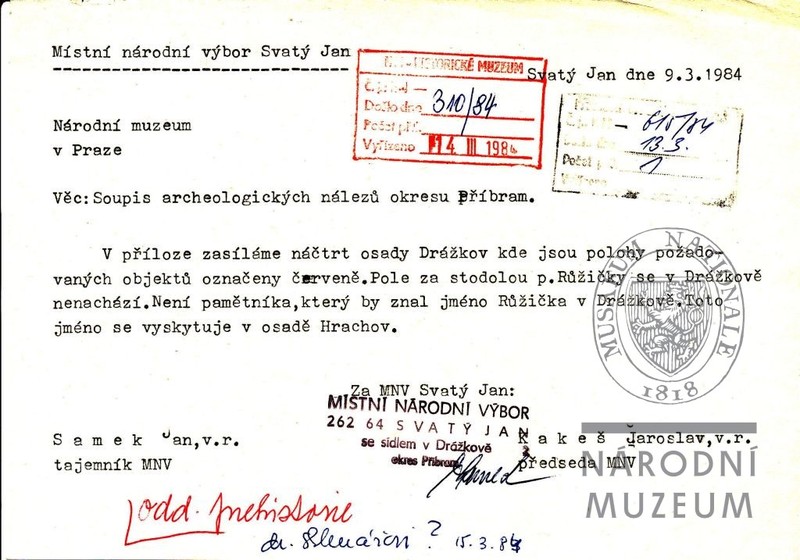 Místní národní výbor Svatý Jan
Svatý Jan dne 9.3.1984
HISTORICKÉ MUZEUM
Došlo dne 310/84
Počet příl.
Vyřízeno 14 III 1984
615/84
13.3.
Počet 1
Národní muzeum
v Praze
Věc:Soupis archeologických nálezů okresu Příbram.
V příloze zasíláme náčtrt osady Drážkov kde jsou polohy požado-
vaných objektů označeny červeně.Pole za stodolou p.Růžičky se v Drážkově
nenachází.Není pamětníka,který by znal jméno Růžička v Drážkově.Toto
jméno se vyskytuje v osadě Hrachov.
MUSEUM NATIONALE
1818
Za MNV Svatý Jan:
MÍSTNÍ NÁRODNÍ VÝBOR
262 64 SVATÝ JAN
se sídlem v Drážkově
okres Příbram
3
Samek Jan,v.r.
tajemník MNV
Kakeš Jaroslav,v.r.
předseda MNV
NÁRODNÍ
MUZEUM
odd. prehistorie
dr. ? 15.3.84